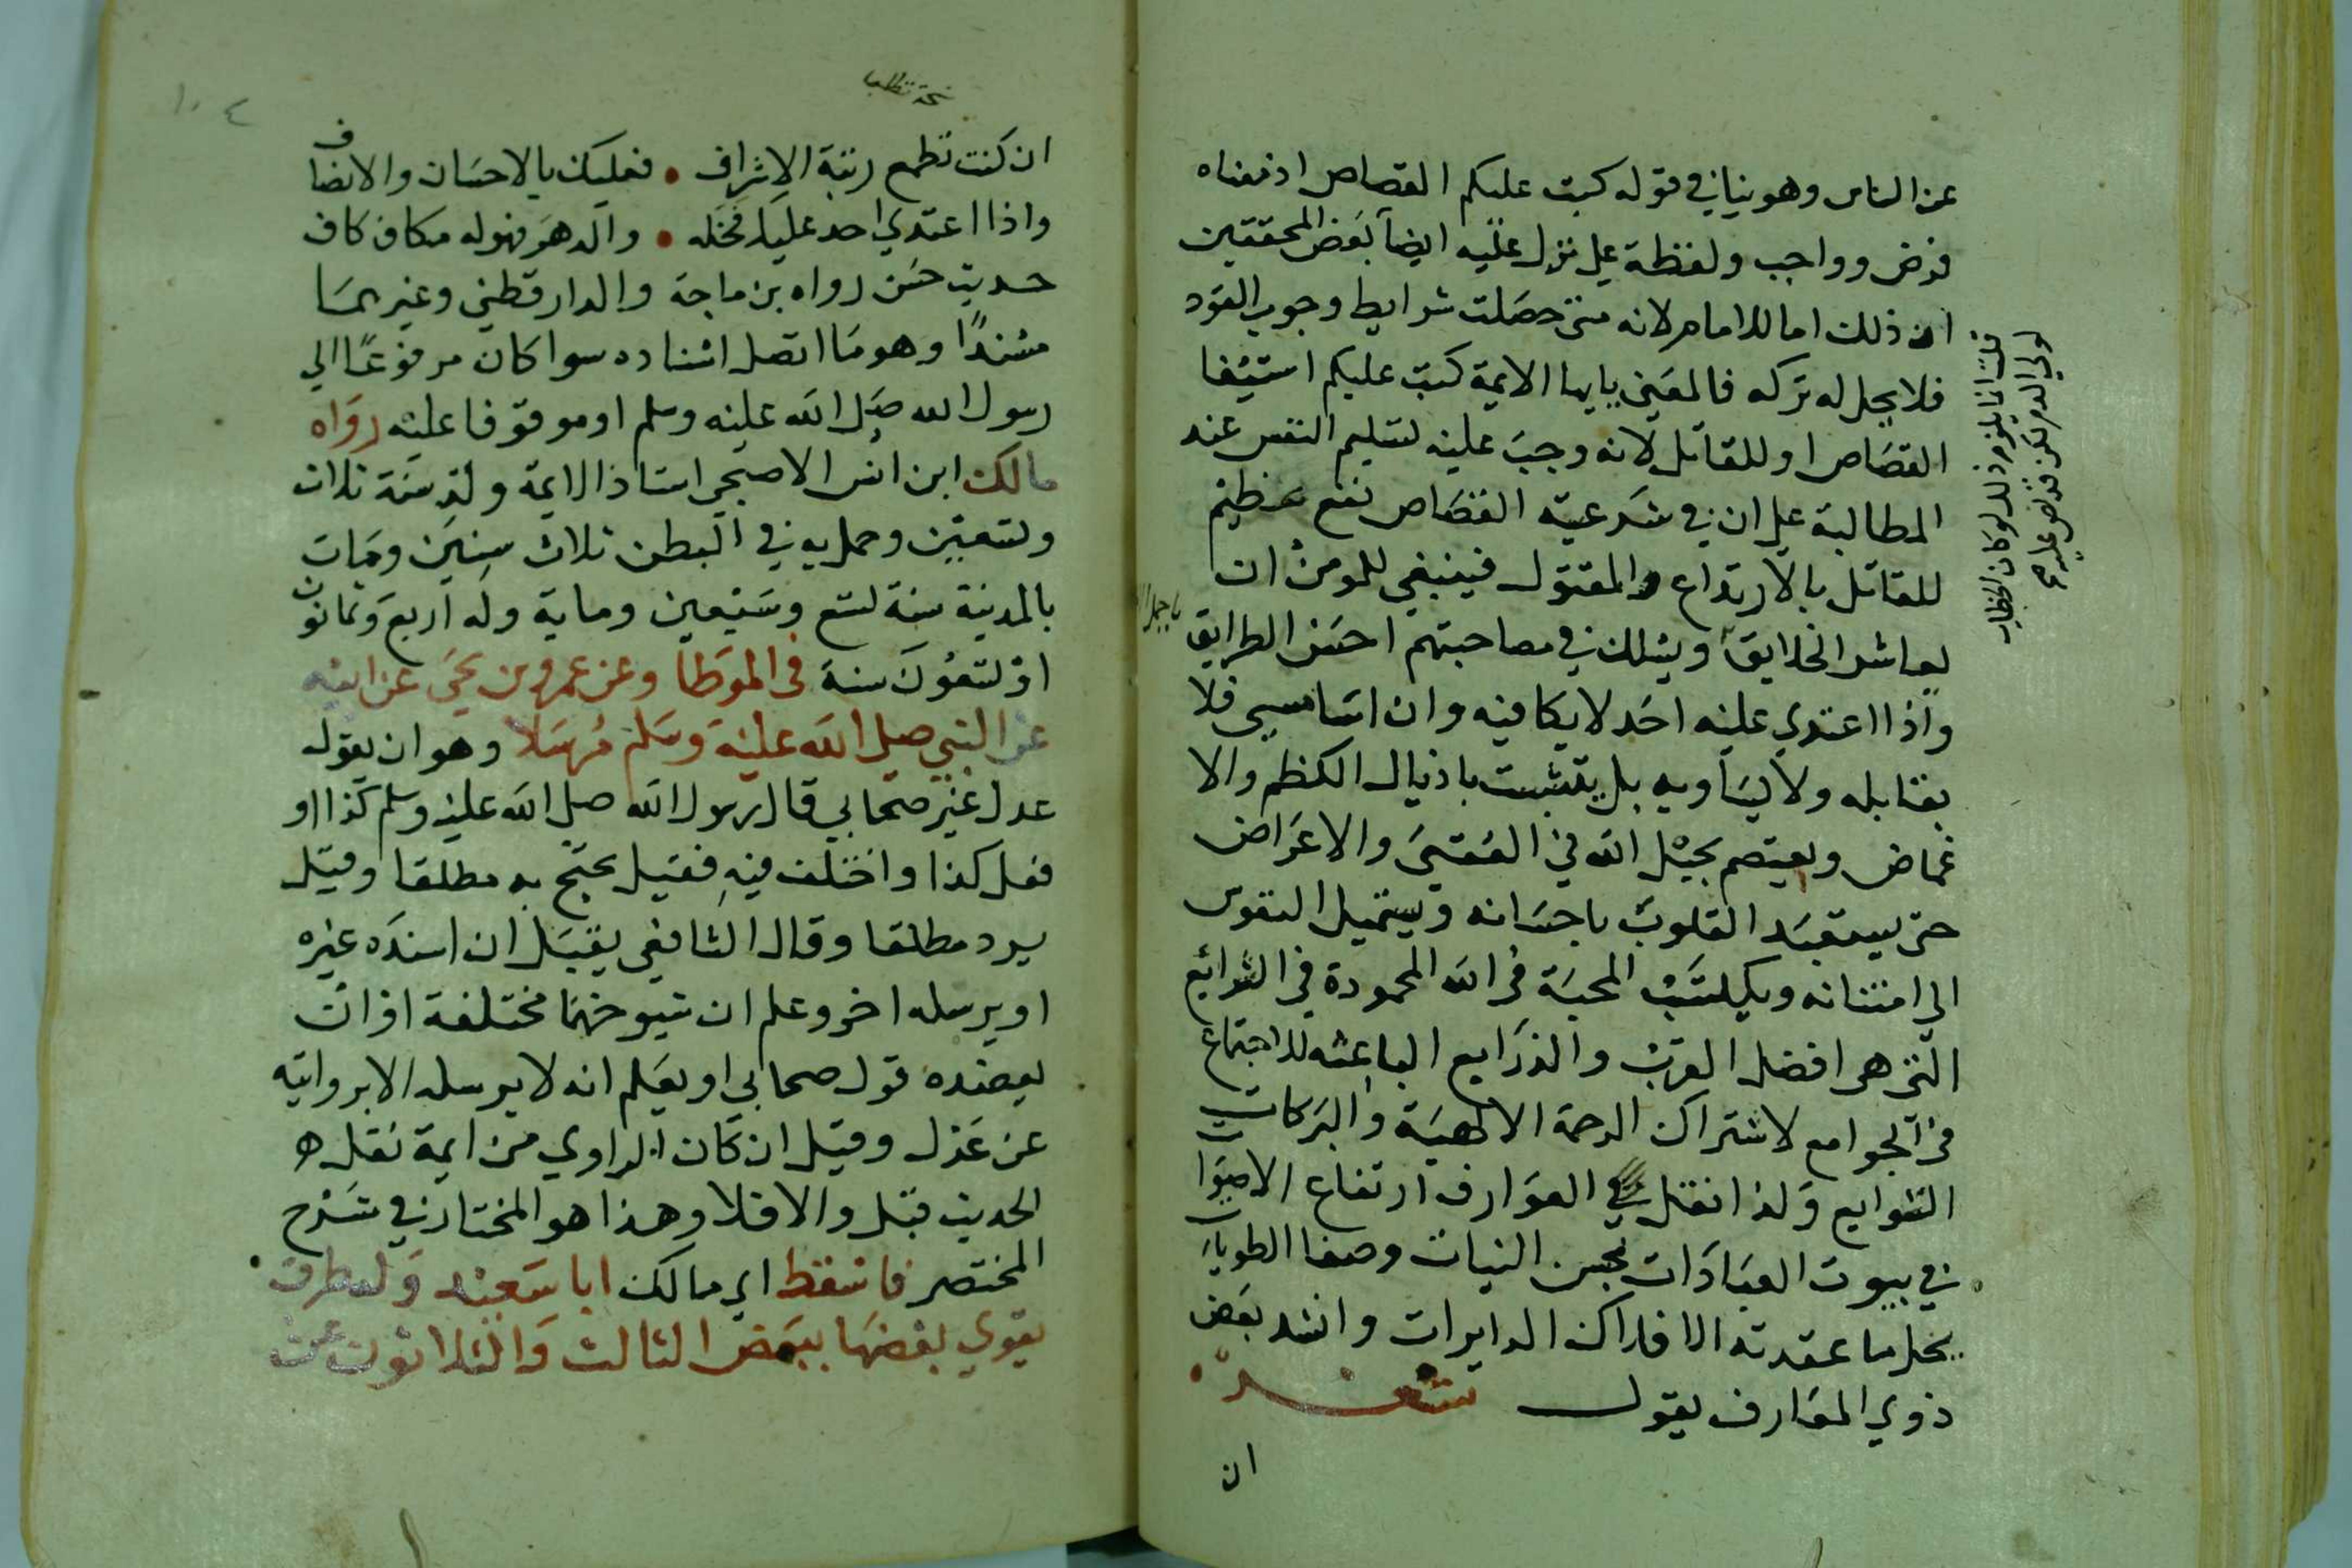 عن الناس وهو ينافي قوله كتب عليكم القصاص اذ معناه
فرض وواجب ولفظة على نزل عليه ايضا بعض المحققين
ان ذلك اما للامام لانه متى حصلت شرايط وجوب القود
فلا يحل له تركه فالمعنى يايها الايمة كتب عليكم استيفا
القصاص او للقاتل لانه وجب عليه تسليم النفس عند
المطالبة على ان في شرعية القصاص نفع عظيم
للقاتل بالارتداع والمقتول فينبغي للمومن ان
يعاشر الخلايق ويسلك في مصاحبتهم احسن الطرايق
واذا اعتدي عليه احد لا يكافيه وان اسا مسي فلا
يقابله ولا يساويه بل يتشبث باذيال الكظم والا
غماض ويعتصم بحبل الله في والاعراض
حتى يستعبد القلوب باحسانه ويستميل النفوس
الى امتنانه ويكتسب المحبة في الله المحمودة في الشرائع
التي هي افضل القرب والذرايع الباعثه للاجتماع
في الجوامع لاشتراك الرحمة الالهية والبركات
ولذا نقل في العوارف ارتفاع الاصوا
في بيوت العبادات بحسن النيات وصفا الطويات
يحل ما عقدته الافلاك الدايرات وانشد بعض
ذوي المعارف يقول شعر
ان
قلت انما يلزم ذلك لو كان الخطاب
لولي الدم لكن فرض عليهم
ان كنت تطمع رتبة الاشراف • فعليك بالاحسان والانصاف
واذا اعتدي احد عليك فخله • والدهر فهو له مكاف كاف
حديث حسن رواه بن ماجة والدارقطني وغيرهما
مسندا وهو ما اتصل اسناده سوا كان مرفوعا الي
رسول الله صلى الله عليه وسلم او موقوفا عليه رواه
مالك ابن انس الاصبحي استاذ الايمة ولد سنة ثلاث
وتسعين وحمل به في البطن ثلاث سنين ومات
بالمدينة سنة تسع وسبعين وماية وله اربع وثمانون
او تسعون سنة في الموطا وعن عمرو بن يحي عن ابيه
عن النبي صلى الله عليه وسلم مرسلا وهو ان يقول
عدل غير صحابي قال رسول الله صلى الله عليه وسلم كذا او
فعل كذا واختلف فيه فقيل يحتج به مطلقا وقيل
يرد مطلقا وقال الشافعي يقبل ان اسنده غيره
او يرسله اخر وعلم ان شيوخهما مختلفة او ان
يعضده قول صحابي او يعلم انه لا يرسله الا بروايته
عن عدل وقيل ان كان الراوي من ايمة نقله
الحديث قبل والا فلا وهذا هو المختار في شرح
المختصر فاسقط اي مالك ابا سعيد وله طرق
يقوي بعضها ببعض الثالث والثلاثون عن